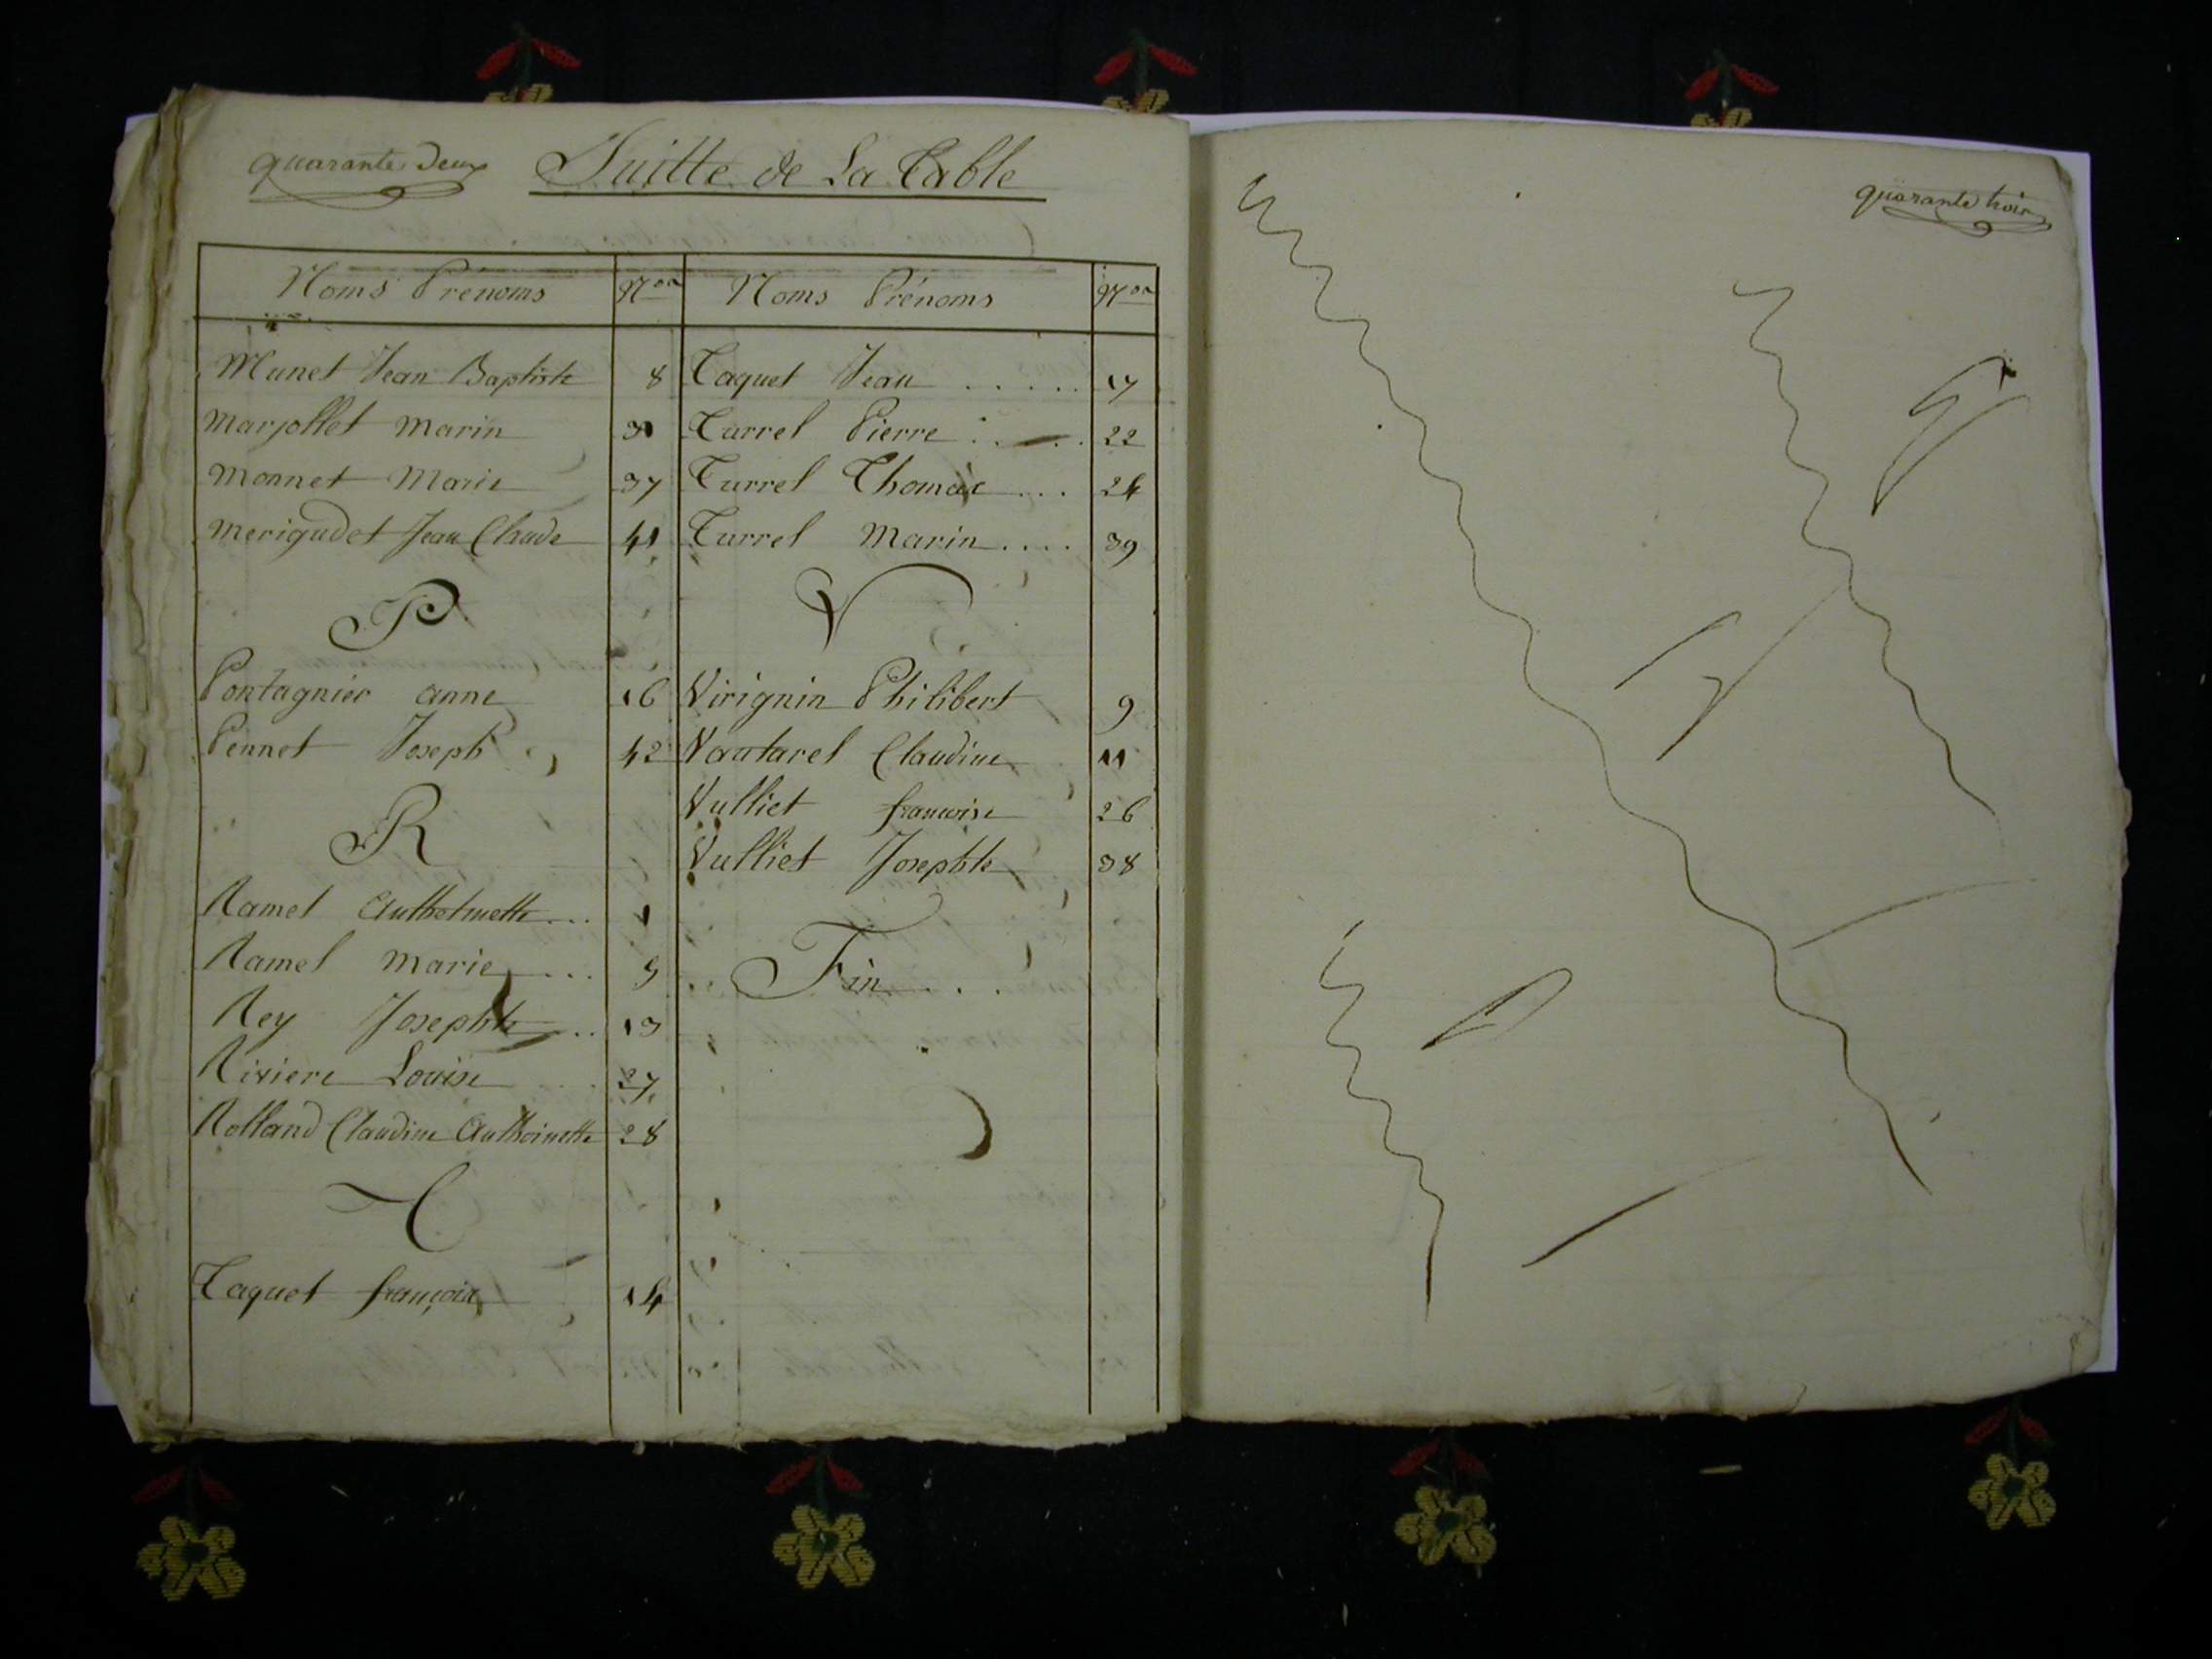 quarante deux
Suitte de La Table
Noms Prénoms Nos
Munet Jean Baptiste 8
Marjollet Marin
Monnet Marie 37
Merigudet Jean Claude 41
P
Pontagnier Anne 16
Pennet Joseph 42
R
Ramel Anthelmette... 1
Ramel Marie ...
Rey Josephte .. 13
Riviere Louise 27
Rolland Claudine Anthoinette 28
T
Taquet françois 14
Noms Prénoms Nos
Taquet Jean ..... 17
Turrel Pierre .... 22
Turrel Thomas ... 24
Turrel Marin .... 39
V
Virignin Philibert 9
Vautarel Claudine 11
Vulliet francoise 26
Vulliet Josephte 38
Fin...
quarante trois